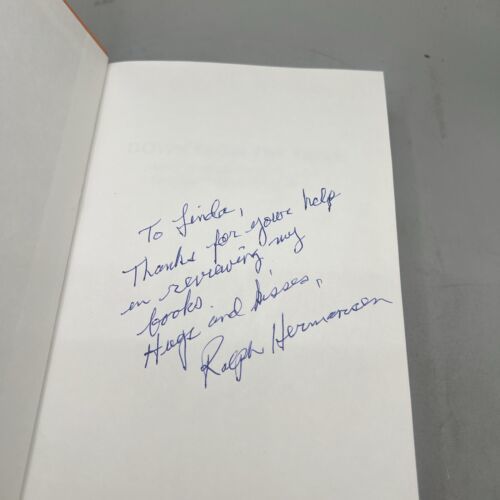 To Linda,
Thanks for your help
in reviewing my
books.
Hugs and kisses,
Ralph Hermansen